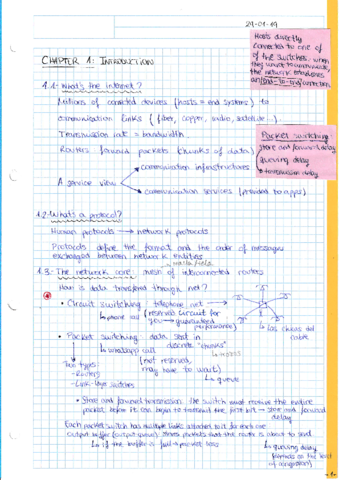 29-01-19
Hosts directly
connected to one of
of the switches: when
they want to communicate,
the network establishes
an end-to-end connection
CHAPTER 1: INTRODUCTION
1.1- What's the internet?
Millions of connected devices (hosts = end systems) to
communication links (fiber, copper, radio, satellite...).
Transmission rate = bandwidth.
Routers forward packets (chunks of data)
Packet switching
store and forward delay
queuing delay
transmission delay
communication infrastructures
A service view
communication services (provided to apps)
1.2- What's a protocol?
Human protocols → network protocols
Protocols define the format and the order of messages
exchanged between network entities
1.3- The network core: mesh of interconnected routers
How is data transferred through net?
• Circuit switching: telephone net
↳ phone call (reserved circuit for
you → guaranteed
performance)
↳ Las chicas del
cable
• Packet switching: data sent in
discrete "chunks"
↳ whatsapp call (not reserved,
may have to wait)
↳ queue
Two types:
- Routers
- Link-layer switches
• Store and forward transmission: the switch must receive the entire
packet before it can begin to transmit the first bit → store and forward
delay
Each packet switch has multiple links attached to it. For each one
output buffer (output queue) stores packets that the router is about to send
↳ if the buffer is full → packet loss
↳ queuing delay
(depends on the level
of congestion)